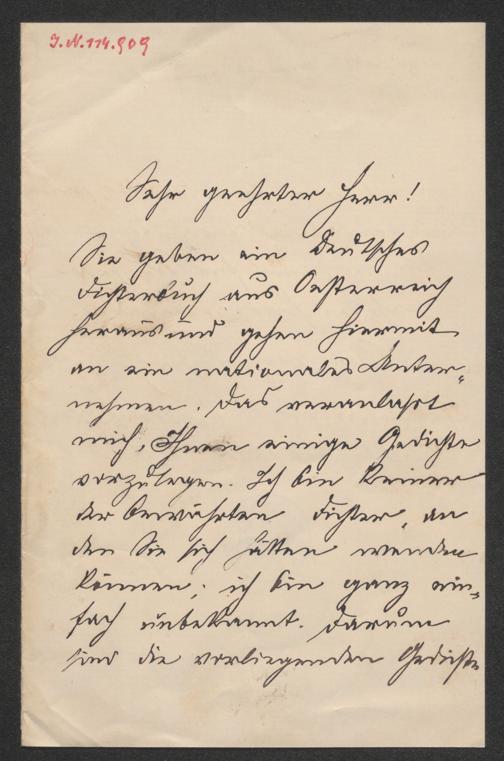 J.N. 114.909
Sehr geehrter Herr!
Sie geben ein Deutsches
Dichterbuch aus Oesterreich
heraus und gehen hiermit
an ein nationales Unter-
nehmen. Das veranlaßt
mich, Ihnen einige Gedichte
vorzulegen. Ich bin keiner
der bewährten Dichter, an
den Sie sich hätten wenden
können; ich bin ganz ein-
fach unbekannt. Darum
sind die vorliegenden Gedichte